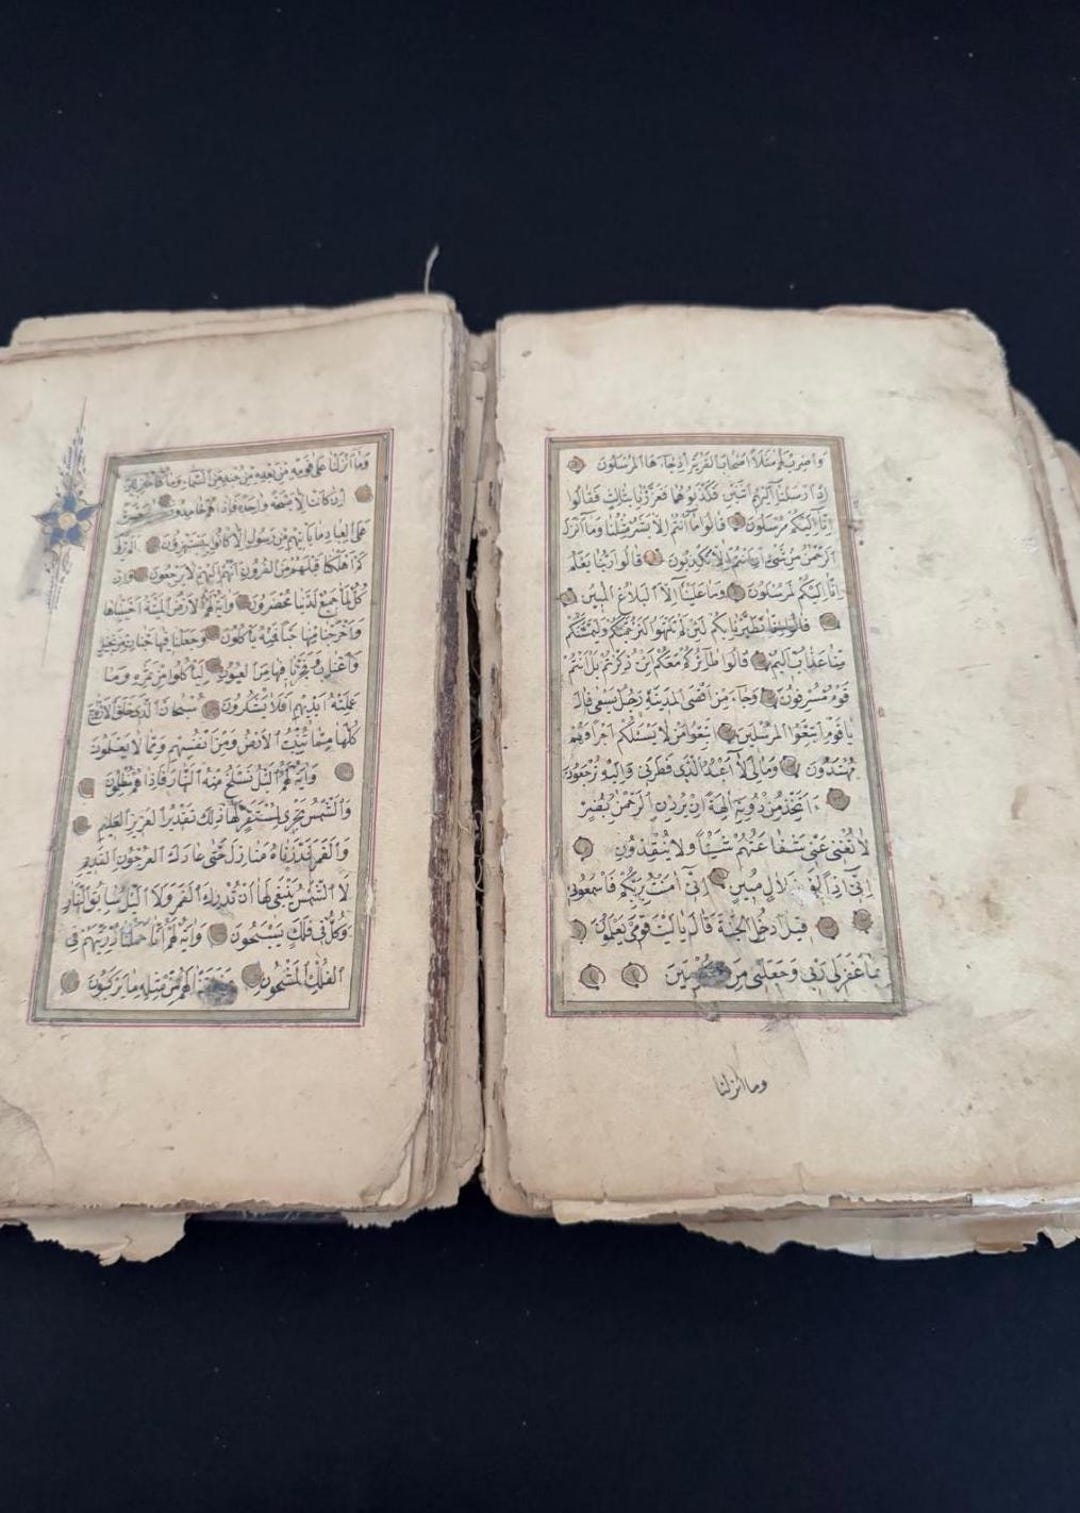 وَاضْرِبْ لَهُمْ مَثَلًا اَصْحَابَ الْقَرْيَةِ اِذْ جَاءَهَا الْمُرْسَلُونَ
اِذْ اَرْسَلْنَا اِلَيْهِمُ اثْنَيْنِ فَكَذَّبُوهُمَا فَعَزَّزْنَا بِثَالِثٍ فَقَالُوا
اِنَّا اِلَيْكُمْ مُرْسَلُونَ قَالُوا مَا اَنْتُمْ اِلَّا بَشَرٌ مِثْلُنَا وَمَا اَنْزَلَ
الرَّحْمٰنُ مِنْ شَيْءٍ اِنْ اَنْتُمْ اِلَّا تَكْذِبُونَ قَالُوا رَبُّنَا يَعْلَمُ
اِنَّا اِلَيْكُمْ لَمُرْسَلُونَ وَمَا عَلَيْنَا اِلَّا الْبَلَاغُ الْمُبِينُ
قَالُوا اِنَّا تَطَيَّرْنَا بِكُمْ لَئِنْ لَمْ تَنْتَهُوا لَنَرْجُمَنَّكُمْ وَلَيَمَسَّنَّكُمْ
مِنَّا عَذَابٌ اَلِيمٌ قَالُوا طَائِرُكُمْ مَعَكُمْ اَئِنْ ذُكِّرْتُمْ بَلْ اَنْتُمْ
قَوْمٌ مُسْرِفُونَ وَجَاءَ مِنْ اَقْصَى الْمَدِينَةِ رَجُلٌ يَسْعٰى قَالَ
يَا قَوْمِ اتَّبِعُوا الْمُرْسَلِينَ اتَّبِعُوا مَنْ لَا يَسْئَلُكُمْ اَجْرًا وَهُمْ
مُهْتَدُونَ وَمَا لِيَ لَا اَعْبُدُ الَّذِي فَطَرَنِي وَاِلَيْهِ تُرْجَعُونَ
ءَاَتَّخِذُ مِنْ دُونِهِ اٰلِهَةً اِنْ يُرِدْنِ الرَّحْمٰنُ بِضُرٍّ
لَا تُغْنِ عَنِّي شَفَاعَتُهُمْ شَيْئًا وَلَا يُنْقِذُونِ
اِنِّي اِذًا لَفِي ضَلَالٍ مُبِينٍ اِنِّي اٰمَنْتُ بِرَبِّكُمْ فَاسْمَعُونِ
قِيلَ ادْخُلِ الْجَنَّةَ قَالَ يَا لَيْتَ قَوْمِي يَعْلَمُونَ
بِمَا غَفَرَ لِي رَبِّي وَجَعَلَنِي مِنَ الْمُكْرَمِينَ
وما انزلنا
وَمَا اَنْزَلْنَا عَلٰى قَوْمِهِ مِنْ بَعْدِهِ مِنْ جُنْدٍ مِنَ السَّمَاءِ وَمَا كُنَّا مُنْزِلِينَ
اِنْ كَانَتْ اِلَّا صَيْحَةً وَاحِدَةً فَاِذَا هُمْ خَامِدُونَ يَا حَسْرَةً
عَلَى الْعِبَادِ مَا يَاْتِيهِمْ مِنْ رَسُولٍ اِلَّا كَانُوا بِهِ يَسْتَهْزِؤُنَ اَلَمْ يَرَوْا
كَمْ اَهْلَكْنَا قَبْلَهُمْ مِنَ الْقُرُونِ اَنَّهُمْ اِلَيْهِمْ لَا يَرْجِعُونَ وَاِنْ
كُلٌّ لَمَّا جَمِيعٌ لَدَيْنَا مُحْضَرُونَ وَاٰيَةٌ لَهُمُ الْاَرْضُ الْمَيْتَةُ اَحْيَيْنَاهَا
وَاَخْرَجْنَا مِنْهَا حَبًّا فَمِنْهُ يَاْكُلُونَ وَجَعَلْنَا فِيهَا جَنَّاتٍ مِنْ نَخِيلٍ
وَاَعْنَابٍ وَفَجَّرْنَا فِيهَا مِنَ الْعُيُونِ لِيَاْكُلُوا مِنْ ثَمَرِهِ وَمَا
عَمِلَتْهُ اَيْدِيهِمْ اَفَلَا يَشْكُرُونَ سُبْحَانَ الَّذِي خَلَقَ الْاَزْوَاجَ
كُلَّهَا مِمَّا تُنْبِتُ الْاَرْضُ وَمِنْ اَنْفُسِهِمْ وَمِمَّا لَا يَعْلَمُونَ
وَاٰيَةٌ لَهُمُ الَّيْلُ نَسْلَخُ مِنْهُ النَّهَارَ فَاِذَا هُمْ مُظْلِمُونَ
وَالشَّمْسُ تَجْرِي لِمُسْتَقَرٍّ لَهَا ذٰلِكَ تَقْدِيرُ الْعَزِيزِ الْعَلِيمِ
وَالْقَمَرَ قَدَّرْنَاهُ مَنَازِلَ حَتّٰى عَادَ كَالْعُرْجُونِ الْقَدِيمِ
لَا الشَّمْسُ يَنْبَغِي لَهَا اَنْ تُدْرِكَ الْقَمَرَ وَلَا الَّيْلُ سَابِقُ النَّهَارِ
وَكُلٌّ فِي فَلَكٍ يَسْبَحُونَ وَاٰيَةٌ لَهُمْ اَنَّا حَمَلْنَا ذُرِّيَّتَهُمْ فِي
الْفُلْكِ الْمَشْحُونِ وَخَلَقْنَا لَهُمْ مِنْ مِثْلِهِ مَا يَرْكَبُونَ